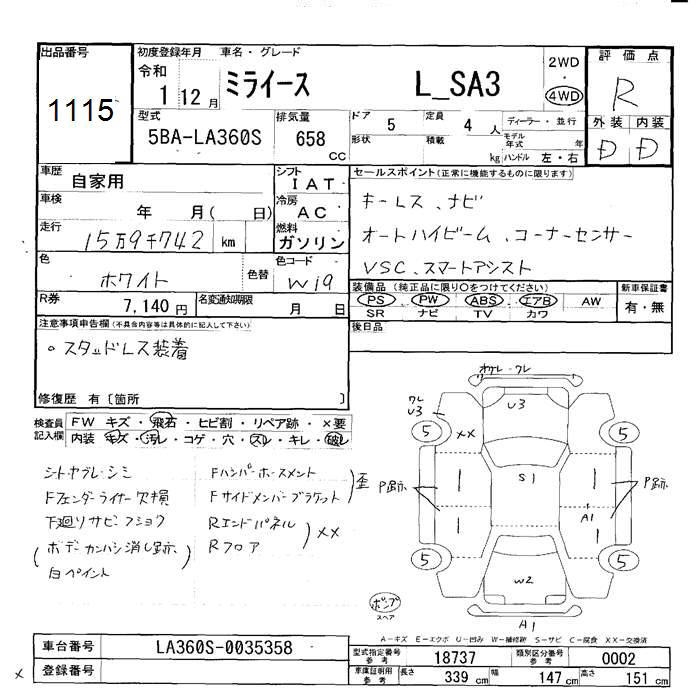 出品番号
1115
初度登録年月
令和
1 12月
車名・グレード
ミライース L_SA3
2WD
・
4WD
評価点
R
外装 内装
D D
型式
5BA-LA360S
排気量
658
cc
ドア
5
形状
定員
4 人
積載
kg
ディーラー・並行
モデル年式 年
ハンドル 左・右
車歴
自家用
車検
年 月( 日)
走行
15万9千742 km
色
ホワイト
色替
R券
7,140 円
名変通知期限
月 日
シフト
IAT
冷房
AC
燃料
ガソリン
色コード
W19
セールスポイント(正常に機能するものに限ります)
キーレス、ナビ
オートハイビーム、コーナーセンサー
VSC、スマートアシスト
装備品(純正品に限り○をつけてください)
PS PW ABS エアB AW
SR ナビ TV カワ
新車保証書
有・無
後日品
注意事項申告欄(不具合内容等は具体的に記入して下さい)
○スタッドレス装着
修復歴 有〔箇所 〕
検査員記入欄
FW キズ・飛石・ヒビ割・リペア跡・×要
内装 キズ・汚レ・コゲ・穴・スレ・キレ・破レ
シートヤブレ・シミ
Fフェンダーライナー欠損
下廻リサビ・フショク
(ボデーカンバン消し跡
白ペイント)
Fバンパーホースメント
Fサイドメンバーブラケット) 歪
Rエンドパネル
Rフロア) ××
ワレ
U3
U3
××
5
5
5
5
S1
P跡
P跡
A1
W2
A1
ポンプ
スペア
A-キズ E-エクボ U-凹み W-補修跡 S-サビ C-腐食 XX-交換済
車台番号
LA360S-0035358
登録番号
×
型式指定番号
参考
18737
類別区分番号
参考
0002
車庫証明用
参考
長さ
339 cm
幅
147 cm
高さ
151 cm